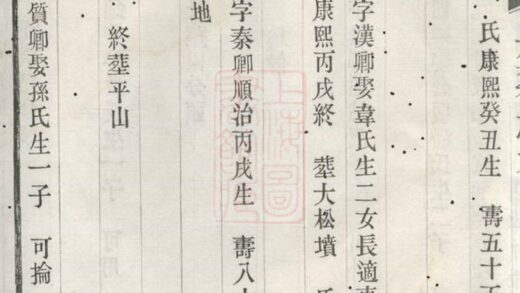 氏康熙癸丑生 壽五十
字漢卿娶韋氏生二女長適
康熙丙戌終 塟大松墳
字泰卿順治丙戌生 壽八
地
終塟平山
質卿娶孫氏生一子 可掄
上海圖